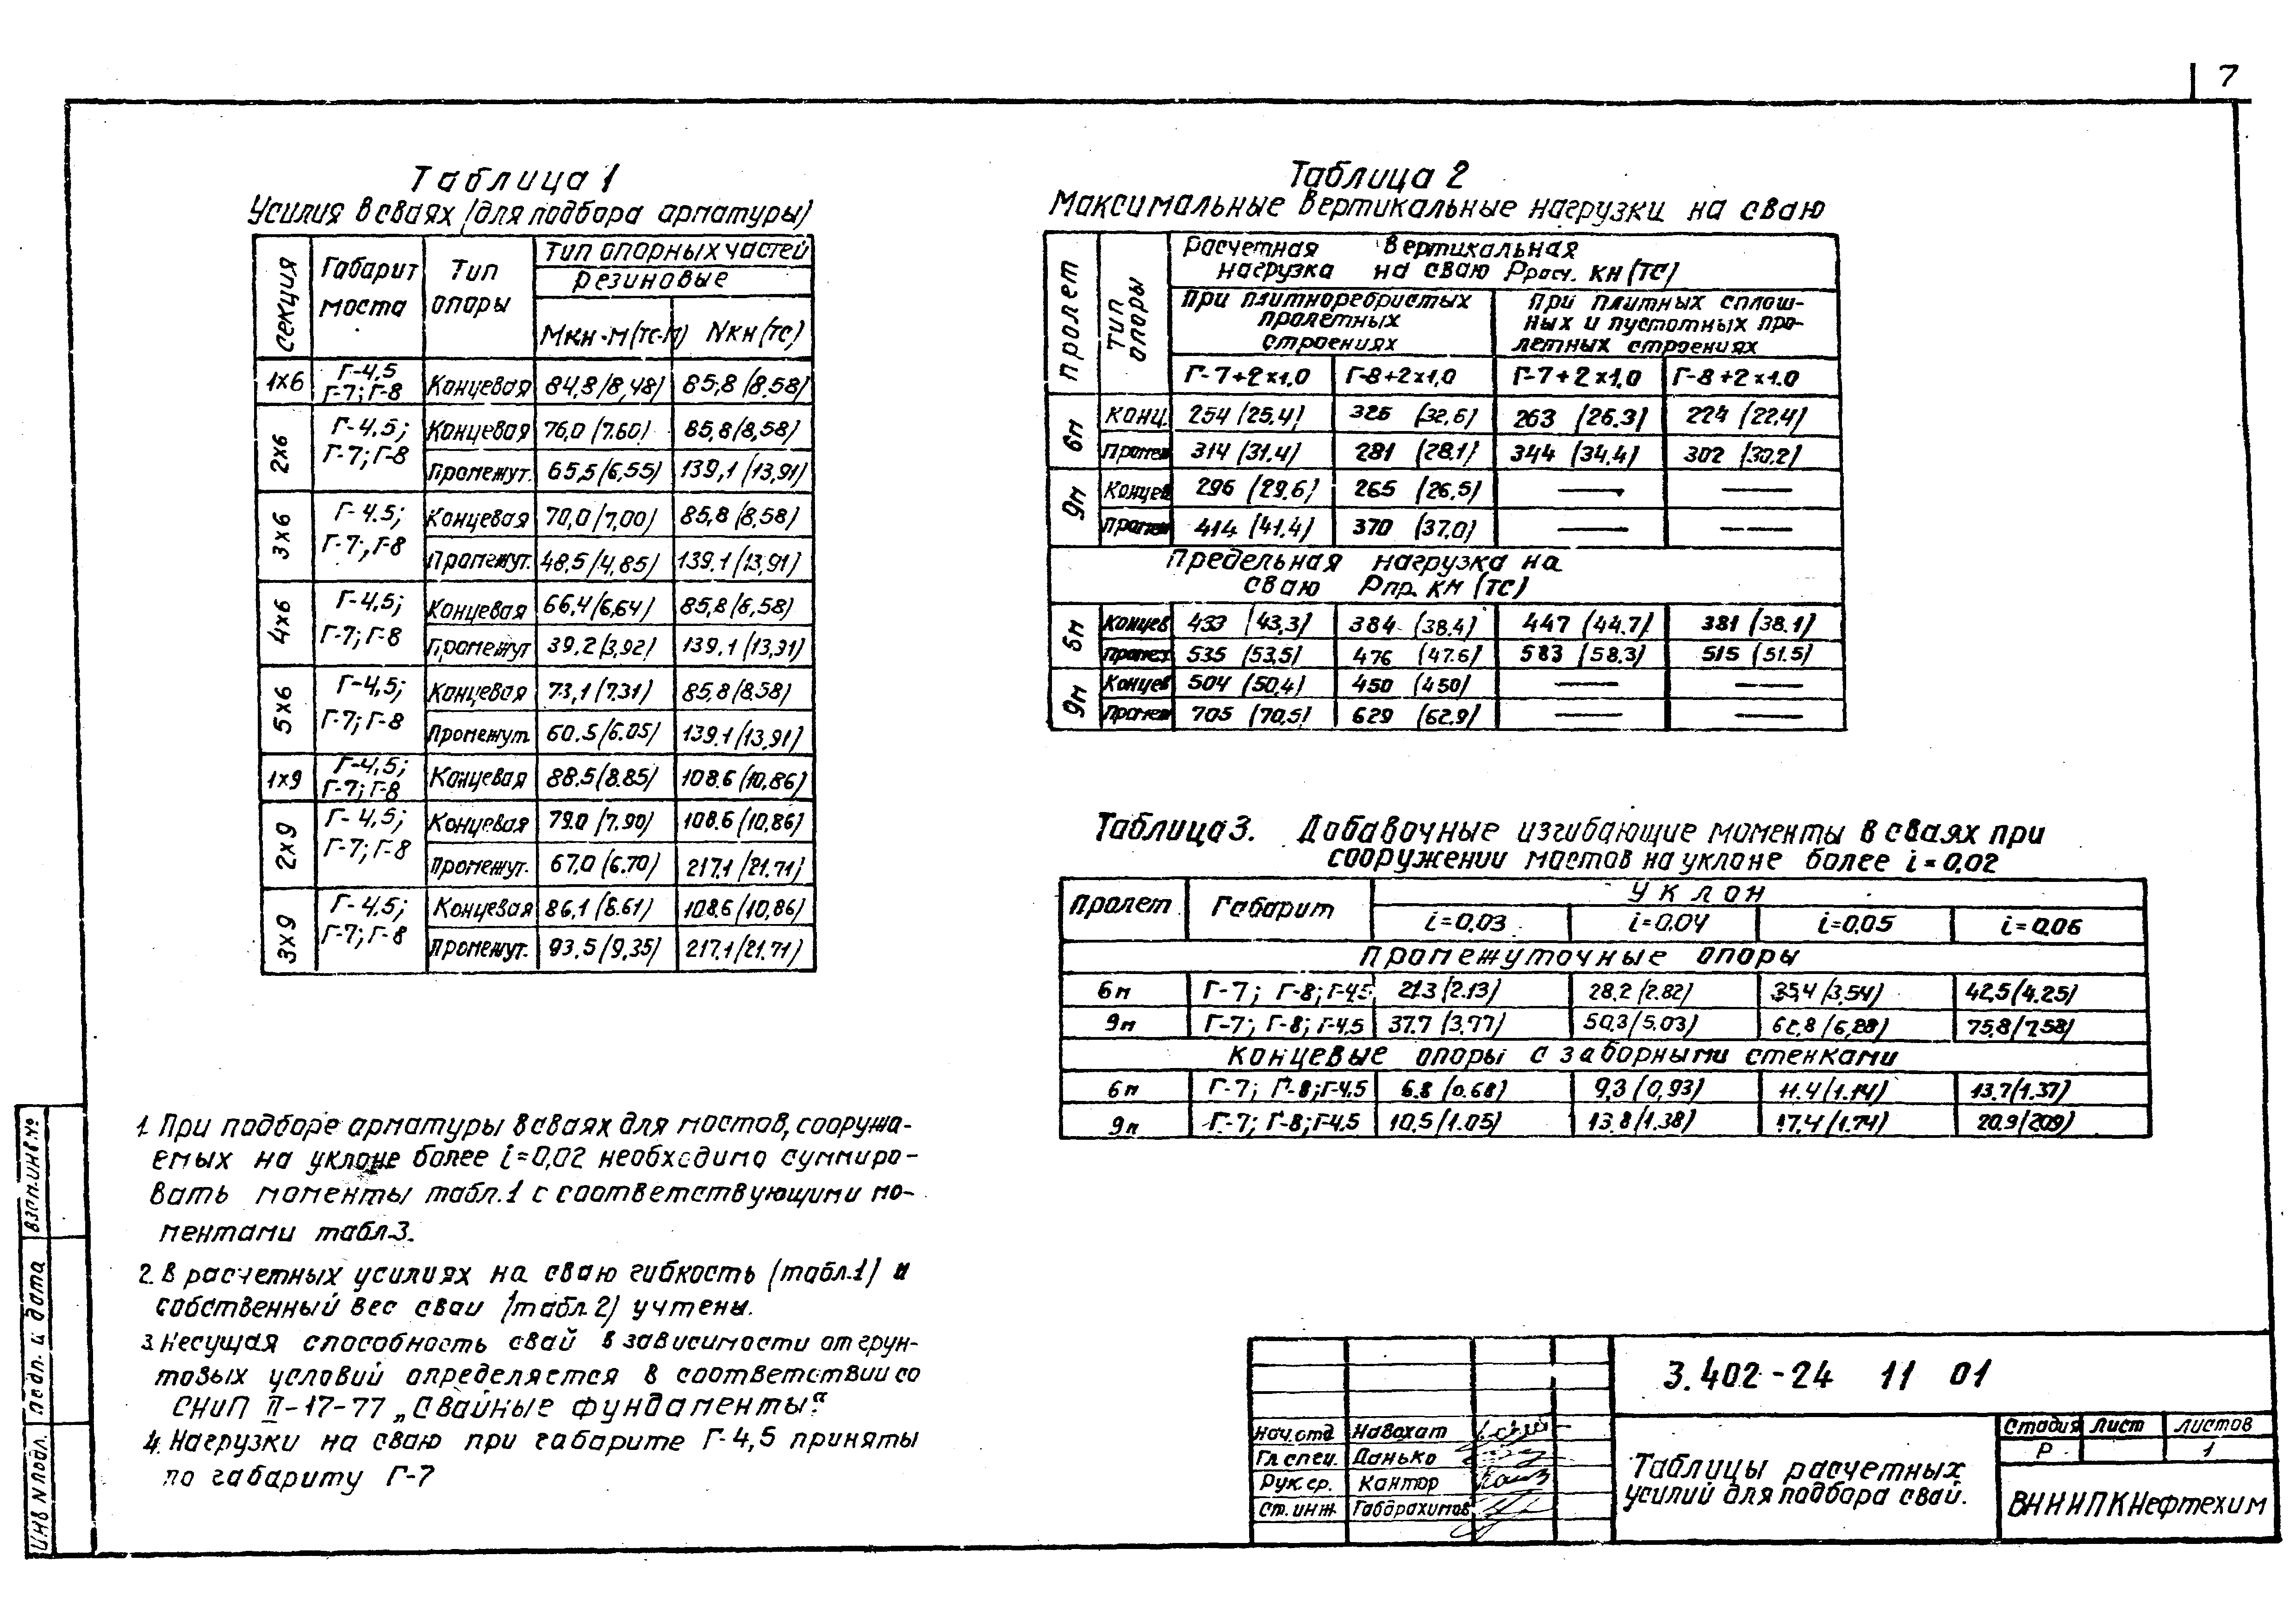 7
Таблица 1
Усилия в сваях (для подбора арматуры)
секция | Габарит моста | Тип опоры | Тип опорных частей
резиновые
Мкн·м(тс·м) | Nкн(тс)
1x6 | Г-4,5 Г-7; Г-8 | Концевая | 84,8(8,48) | 85,8(8.58)
2x6 | Г-4,5; Г-7; Г-8 | Концевая | 76,0(7.60) | 85,8(8,58)
Промежут. | 65,5(6,55) | 139,1(13,91)
3x6 | Г-4.5; Г-7; Г-8 | Концевая | 70,0(7,00) | 85,8(8.58)
Промежут. | 48,5(4,85) | 139.1(13,91)
4x6 | Г-4,5; Г-7; Г-8 | Концевая | 66,4(6,64) | 85,8(8,58)
Промежут | 39.2(3,92) | 139.1(13,91)
5x6 | Г-4,5; Г-7; Г-8 | Концевая | 73,1(7.31) | 85,8(8.58)
Промежут. | 60.5(6.05) | 139.1(13,91)
1x9 | Г-4,5; Г-7; Г-8 | Концевая | 88.5(8.85) | 108.6(10,86)
2x9 | Г-4,5; Г-7; Г-8 | Концевая | 79.0(7.90) | 108.6(10,86)
Промежут. | 67,0(6.70) | 217.1(21.71)
3x9 | Г-4.5; Г-7; Г-8 | Концевая | 86,1(8.61) | 108.6(10,86)
Промежут. | 93.5(9,35) | 217.1(21.71)
1. При подборе арматуры в сваях для мостов, сооружа-
емых на уклоне более i=0,02 необходимо суммиро-
вать моменты табл.1 с соответствующими мо-
ментами табл.3.
2. В расчетных усилиях на сваю гибкость (табл.1) и
собственный вес сваи (табл.2) учтены.
3. Несущая способность свай в зависимости от грун-
товых условий определяется в соответствии со
СНиП II-17-77 „Свайные фундаменты“.
4. Нагрузки на сваю при габарите Г-4,5 приняты
по габариту Г-7
Таблица 2
Максимальные вертикальные нагрузки на сваю
пролет | Тип опоры | Расчетная вертикальная
нагрузка на сваю Ррасч. кн(тс)
При плитноребристых пролетных строениях | При плитных сплош-
ных и пустотных про-
летных строениях
Г-7+2x1,0 | Г-8+2x1,0 | Г-7+2x1,0 | Г-8+2x1.0
6м | Конц. | 254 (25.4) | 326 (32,6) | 263 (26.3) | 224 (22,4)
Промеж | 314 (31.4) | 281 (28.1) | 344 (34.4) | 302 (30.2)
9м | Концев | 296 (29.6) | 265 (26,5) | — | —
Промеж | 414 (41.4) | 370 (37.0) | — | —
Предельная нагрузка на
сваю Рпр. кн (тс)
6м | Концев | 433 (43,3) | 384 (38.4) | 447 (44.7) | 381 (38.1)
Промеж | 535 (53,5) | 476 (47.6) | 583 (58.3) | 515 (51.5)
9м | Концев | 504 (50,4) | 450 (450) | — | —
Промеж | 705 (70,5) | 629 (62.9) | — | —
Таблица 3. Добавочные изгибающие моменты в сваях при
сооружении мостов на уклоне более i=0,02
Пролет | Габарит | Уклон
i=0,03 | i=0.04 | i=0,05 | i=0.06
Промежуточные опоры
6м | Г-7; Г-8; Г-4,5 | 21.3(2.13) | 28.2(2.82) | 35,4(3,54) | 42,5(4.25)
9м | Г-7; Г-8; Г-4,5 | 37.7(3,77) | 50,3(5.03) | 62,8(6,28) | 75,8(7.58)
Концевые опоры с заборными стенками
6м | Г-7; Г-8; Г-4,5 | 6.8(0.68) | 9,3(0,93) | 11.4(1.14) | 13.7(1.37)
9м | Г-7; Г-8; Г-4,5 | 10,5(1.05) | 13.8(1.38) | 17.4(1.74) | 20.9(209)
взам.инв.№
подп. и дата
ИНВ N подл.
3.402-24 11 01
нач.отд | Навохат
Гл.спец. | Данько
Рук.гр. | Кантор
Ст.инж | Габдрахимов
Таблицы расчетных
усилий для подбора свай.
Стадия | лист | листов
Р | 1
ВНИИПКНефтехим